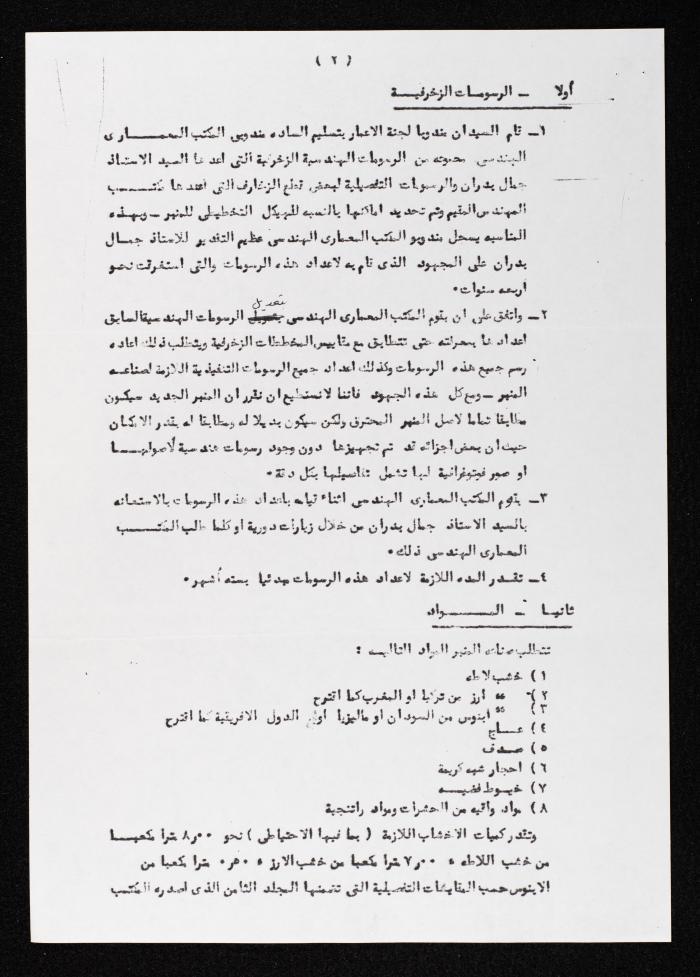 ( ٢ )
أولا ـ الرسومات الزخرفيـــة
١ـ قام السيدان مندوبا لجنة الاعمار بتسليم الساده مندوبى المكتب المعمـــارى
الهندسى مجموعه من الرسومات الهندسية الزخرفية التى اعدها السيد الاستاذ
جمال بدران والرسومات التفصيلية لبعض قطع الزخارف التى أعدها مكتـــب
المهندس المقيم وتم تحديد اماكنها بالنسبه للهيكل التخطيطى للمنبر ـ وبهذه
المناسبه يسجل مندوبو المكتب المعمارى الهندسى عظيم التقدير للاستاذ جمــال
بدران على المجهود الذى قام به لاعداد هذه الرسومات والتى استغرقت نحو
أربعه سنوات٠
تعديل
٢ـ واتفق على ان يقوم المكتب المعمارى الهندسى الرسومات الهندسية السابق
اعدادها بمعرفته حتى تتطابق مع مقاييس المخططات الزخرفية ويتطلب ذلك اعاده
رسم جميع هذه الرسومات وكذلك اعداد جميع الرسومات التنفيذية اللازمة لصناعـه
المنبر ـ ومع كل هذه الجهود فاننا لا نستطيع ان نقرر ان المنبر الجديد سيكون
مطابقا تماما لاصل المنبر المحترق ولكن سيكون بديلا له ومطابقا له بقدر الامكان
حيث ان بعض اجزائه قد تم تجهيزها دون وجود رسومات هندسية لأصولهـــا
او صور فوتوغرافية لها تشمل تفاصيلها بكل دقة٠
٣ـ يقوم المكتب المعمارى الهندسى اثناء قيامه باعداد هذه الرسومات بالاستعانه
بالسيد الاستاذ جمال بدران من خلال زيارات دورية او كلما طلب المكتـــب
المعمارى الهندسى ذلك٠
٤ـ تقدر المده اللازمة لاعداد هذه الرسومات مبدئيا بسته أشهر٠
ثانيا ـ المـــواد
تتطلب صناعه المنبر المواد التاليـه :
١ ) خشب لاطه
٢ ) " ارز من تركيا او المغرب كما اقترح
٣ ) " ابنوس من السودان او ماليزيا او الدول الافريقية كما اقترح
٤ ) عـــاج
٥ ) صـدف
٦ ) احجار شبه كريمة
٧ ) خيـوط فضيـــه
٨ ) مواد واقيه من الحشرات ومواد راتنجية
وتقدر كميات الاخشاب اللازمة ( بما فيها الاحتياطى ) نحو ٨٫٠٠ مترا مكعبـــا
من خشب اللاطه ، ٧٫٠٠ مترا مكعبا من خشب الارز ، ٠٫٥٠ مترا مكعبا من
الابنوس حسب المقايسات التفصيلية التى تضمنها المجلد الثامن الذى اصدره المكتب